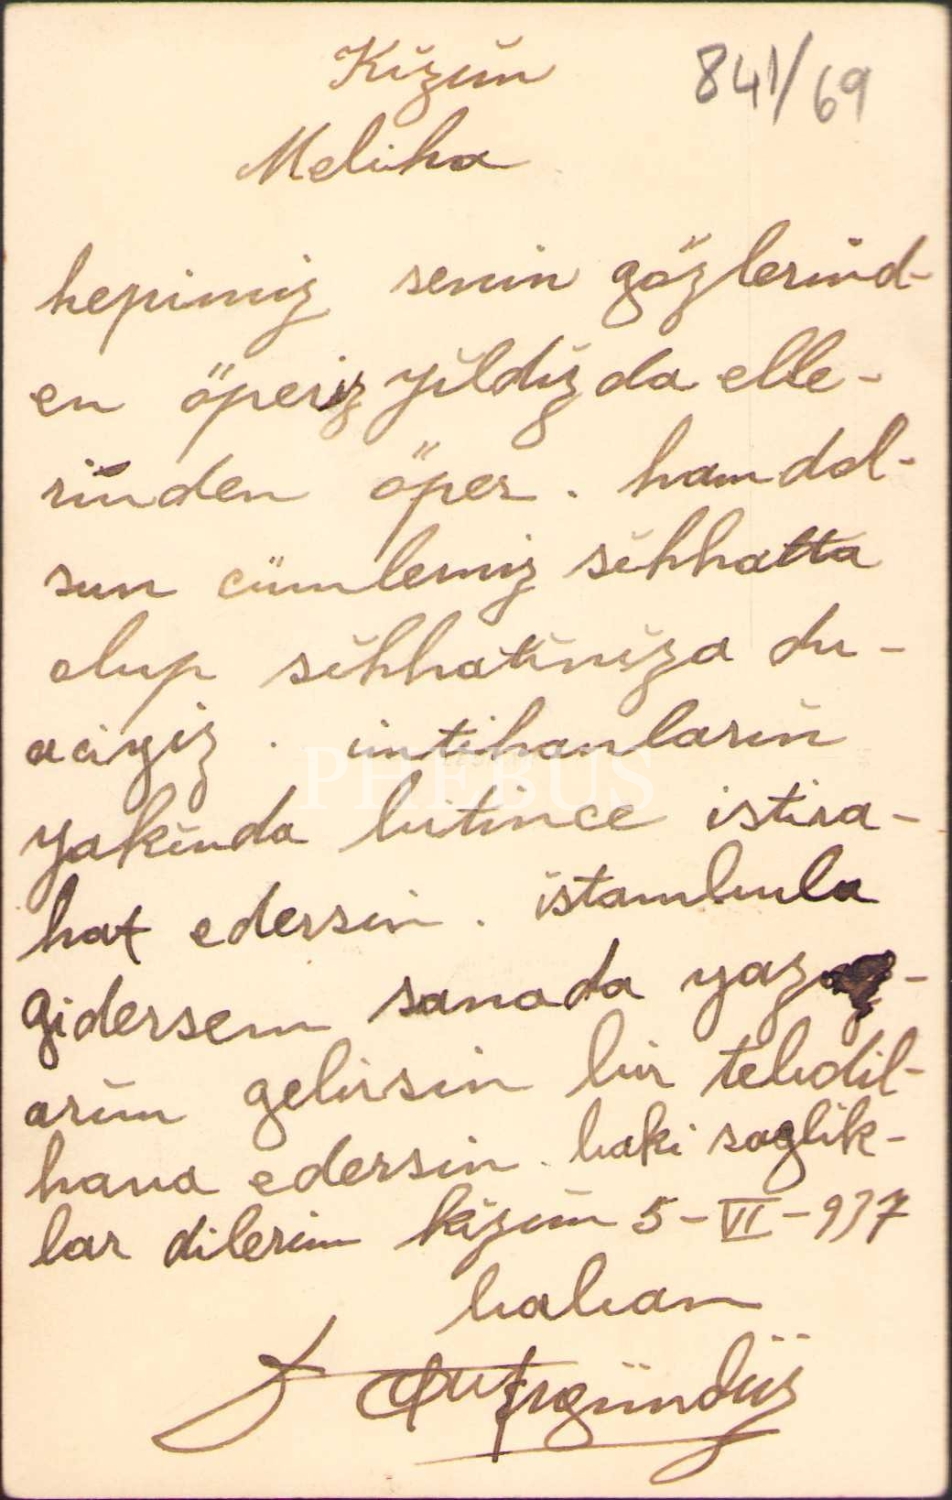 Kızım 841/69
Meliha
hepimiz senin gözlerind-
en öperiz yıldız da elle-
rinden öper. hamdol-
sun cümlemiz sıhhatta
olup sıhhatınıza du-
acıyız. imtihanların
yakında bitince istira-
hat edersin. istambula
gidersem sanada yaz-
arım gelirsin bir tebdil-
hava edersin. baki sağlık-
lar dilerim kızım 5-VI-937
baban
PHEBUS